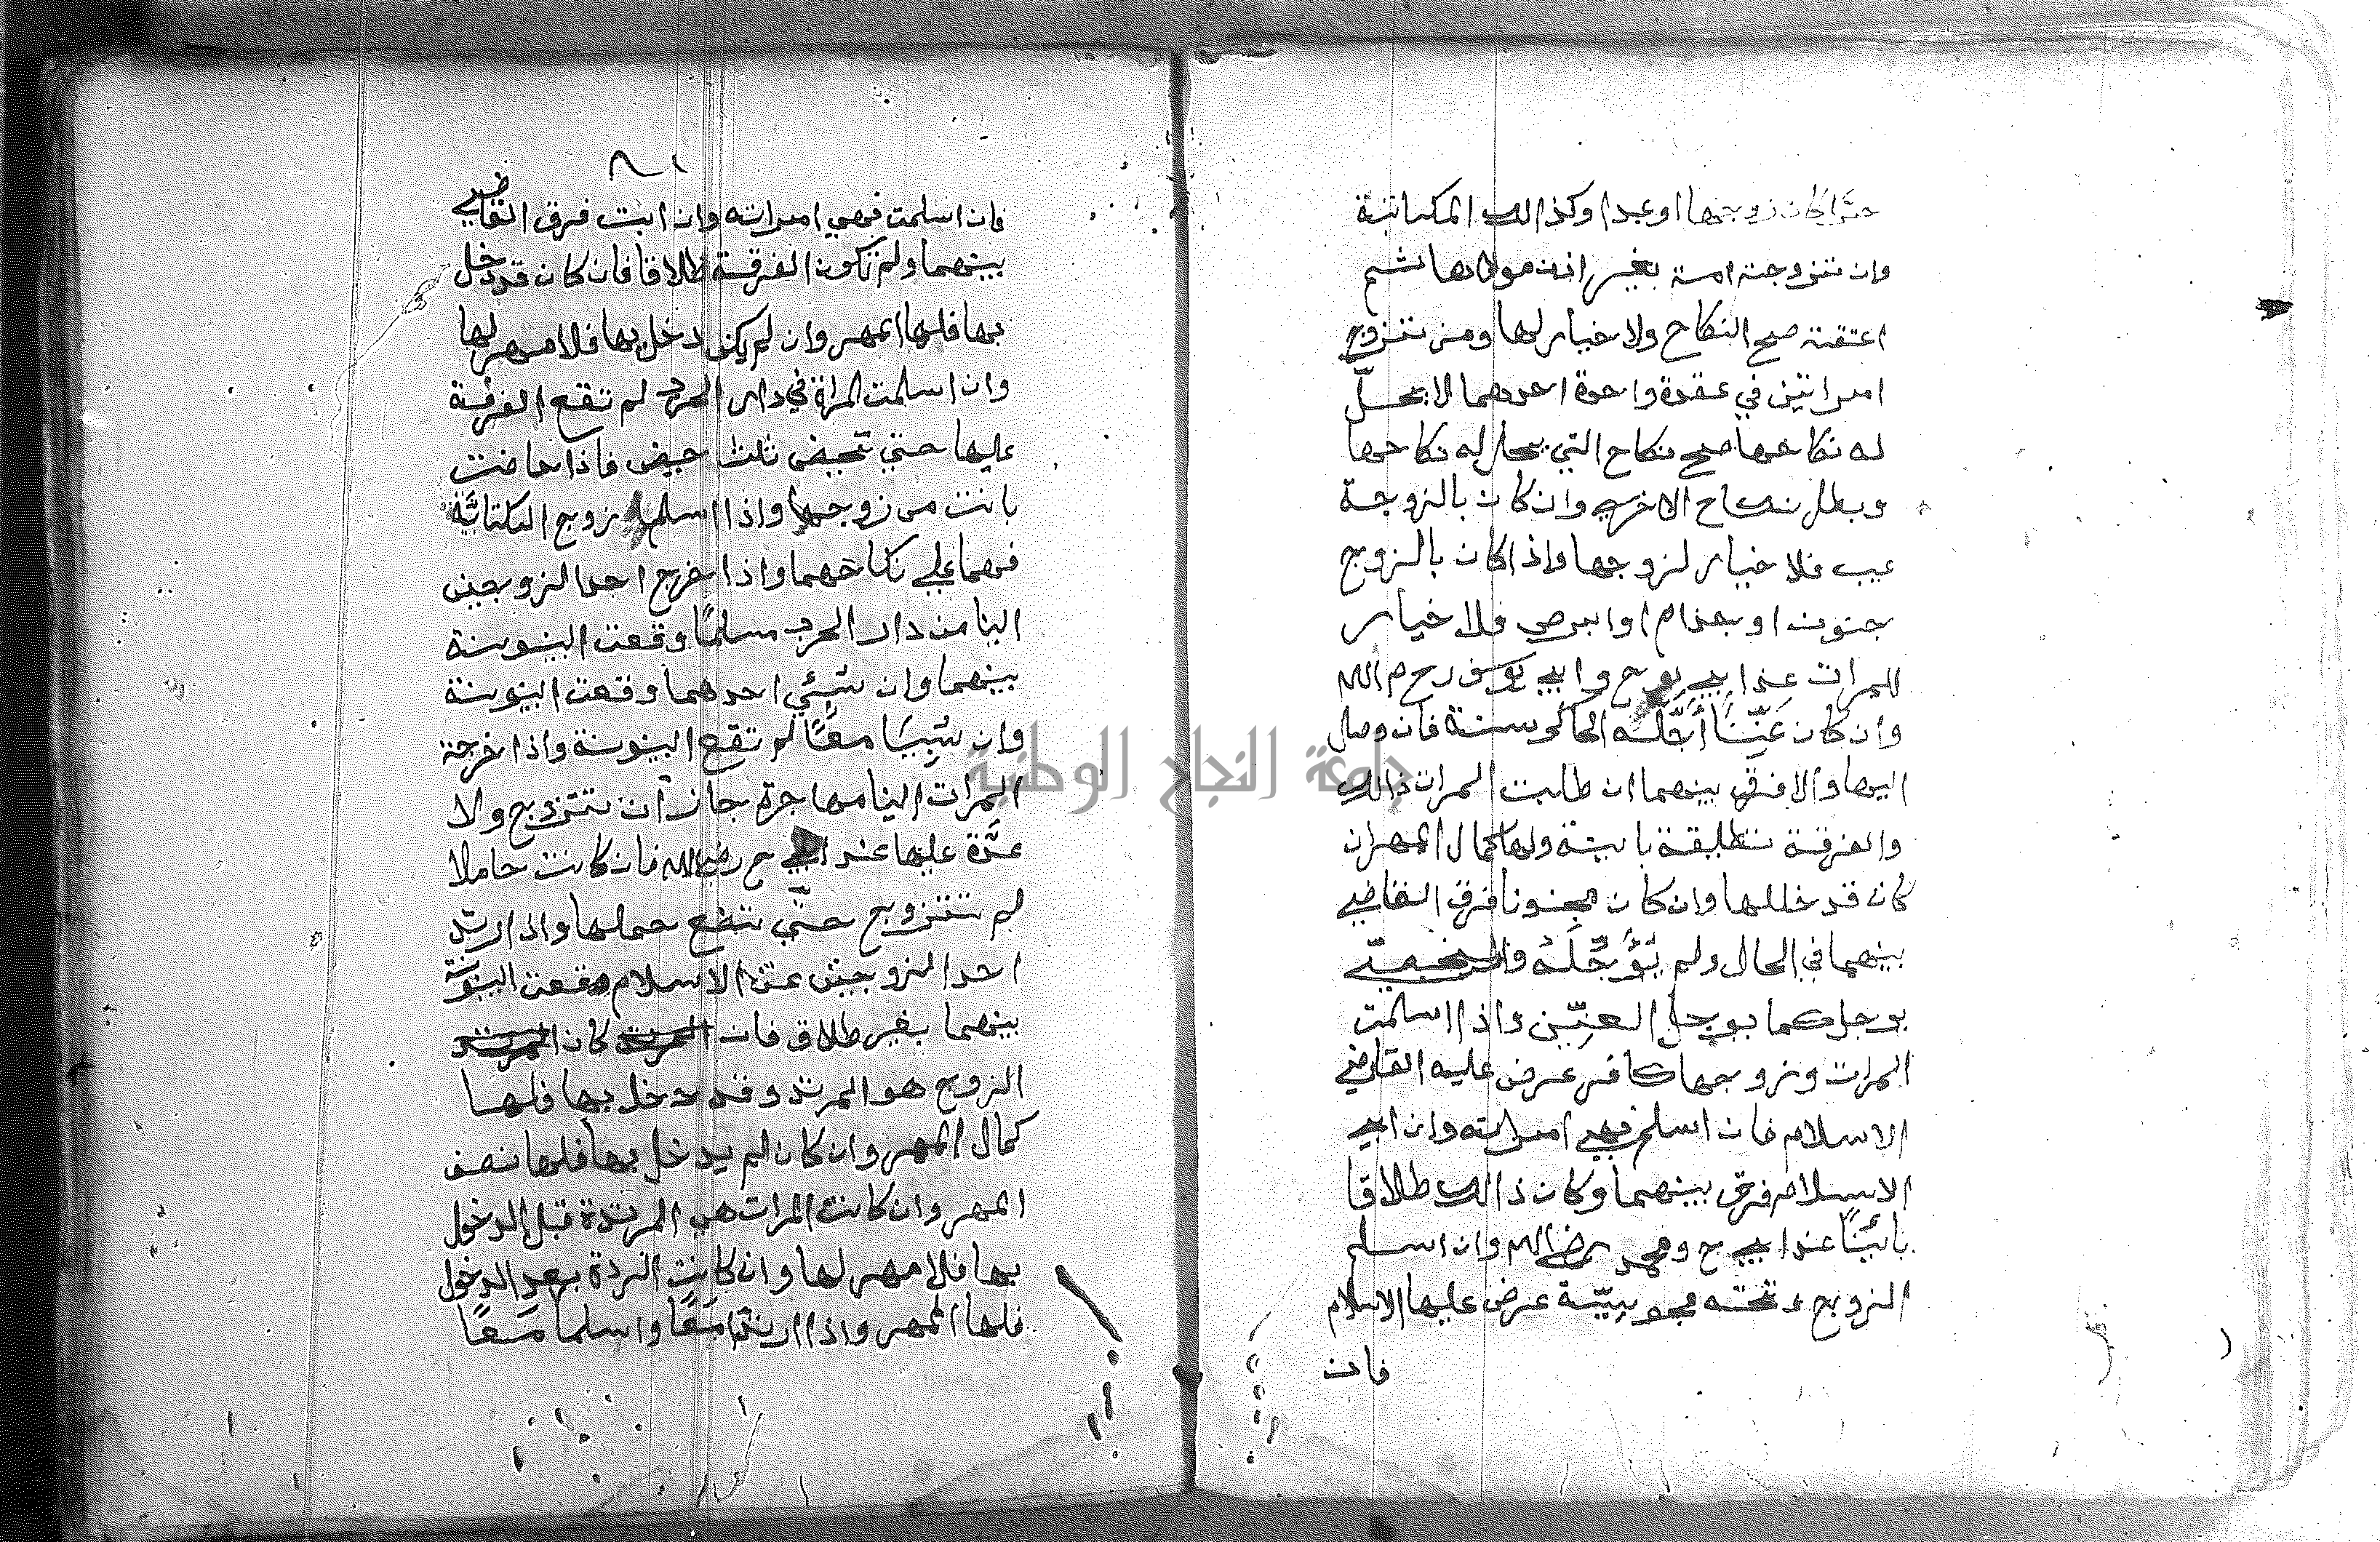 حرًّا كان زوجها اوعبدا وكذالك المكباتبة
وان تتزوجة امة بغير اذن مولاها ثم
اعتقة صح النكاح ولا خيار لها ومن تتزوج
امراتين في عقدة واحدة احدهما لا يحلّ
له نكاحها صح نكاح التي يحل له نكاحها
وبطل نكاح الاخري وان كان بالزوجة
عيب فلا خيار لزوجها واذا كان بالزوج
جنون او جذام او ابرص فلا خيار
للمرات عند ابي ح وابي يوسف رحم الله
وان كان عنّينًا أجّله الحاكم سنة فان وصل
اليها والا فرق بينهما ان طلبت المرات ذالك
والفرقة تطليقة باينة ولها كمال المهر ان
كان قد خللها وان كان مجنونا فرق القاضي
بينهما في الحال ولم يؤجّله والخصيّ
يوجل كما يوجل العنّين واذا اسلمت
المرات وزوجها كافر عرض عليه القاضي
الاسلام فان اسلم فهي امراته وان ابي
الاسلام فرق بينهما وكان ذالك طلاقا
بائينًا عند ابي ح ومحمد رضي الله وان اسلم
الزوج و تحته مجوسيّة عرض عليها الاسلام
فان
جامعة النجاح الوطنية
٨١
فان اسلمت فهي امراته وان ابت فرق القاضي
بينهما ولم تكون الفرقة طلاقا فان كان قد دخل
بها فلها المهر وان لم يكن دخل بها فلا مهر لها
وان اسلمت المراة في دار الحرب لم تقع الفرقة
عليها حتي تحيض ثلث حيض فاذا حاضت
بانت من زوجها واذا اسلم زوج الكتابية
فهما علي نكاحهما واذا خرج احد الزوجين
الينا من دار الحرب مسلمًا وقعت البينونة
بينهما وان سُبي احدهما وقعت البينونة
وان سُبِيَا معًا لم تقع البينونة واذا خرجة
المرات الينا مهاجرة جاز ان تتزوج ولا
عدّة عليها عند ابي ح رضي الله فان كانت حاملا
لم تتزوج حتّي تضع حملها واذا ارتدّ
احد الزوجين عن الاسلام وقعت البينونة
بينهما بغير طلاق فان المرتد كان المرتد
الزوج هو المرتد وقد دخل بها فلها
كمال المهر وان كان لم يدخل بها فلها نصف
المهر وان كانت المرات هي المرتدة قبل الدخول
بها فلا مهر لها وان كانت الردة بعد الدخول
فلها المهر واذا ارتدّا مَعًا واسلما مَعًا